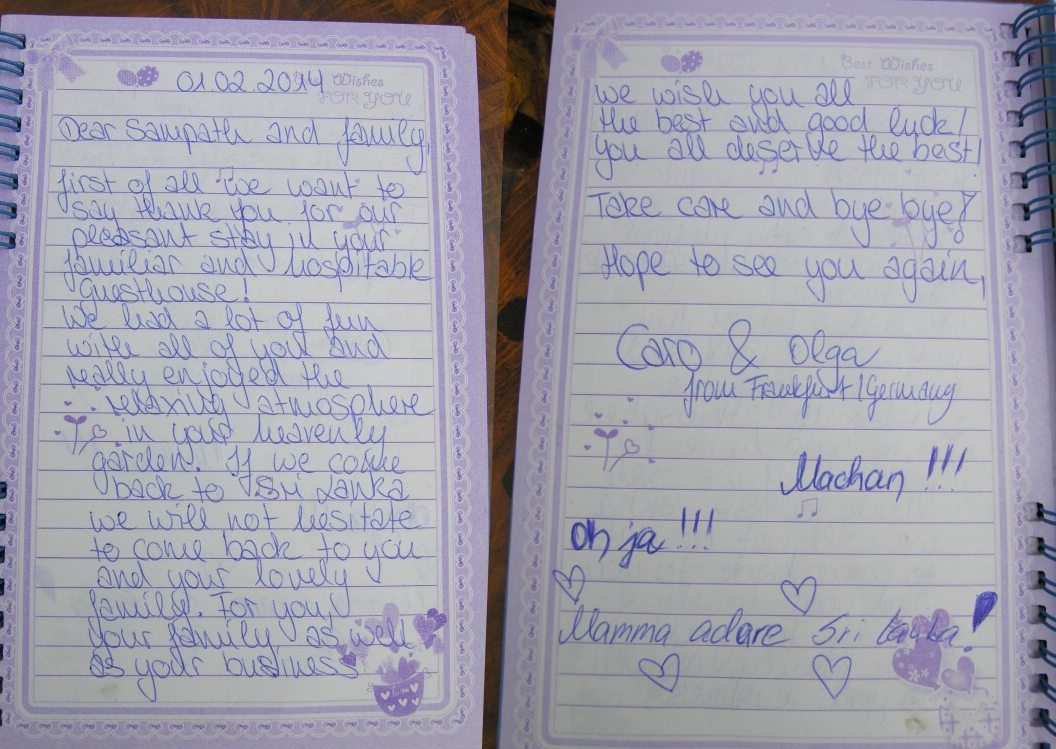 Best Wishes
FOR YOU
01.02.2014
Dear Sampath and family,
first of all we want to
say thank you for our
pleasant stay in your
familiar and hospitable
guesthouse!
We had a lot of fun
with all of you and
really enjoyed the
relaxing atmosphere
in your heavenly
garden. If we come
back to Sri Lanka
we will not hesitate
to come back to you
and your lovely
family. For you,
your family as well
as your business
Best Wishes
FOR YOU
we wish you all
the best and good luck!
you all deserve the best!
Take care and bye bye!
Hope to see you again,
Caro & Olga
from Frankfurt/Germany
Machan!!!
oh ja!!!
Mamma adore Sri Lanka!